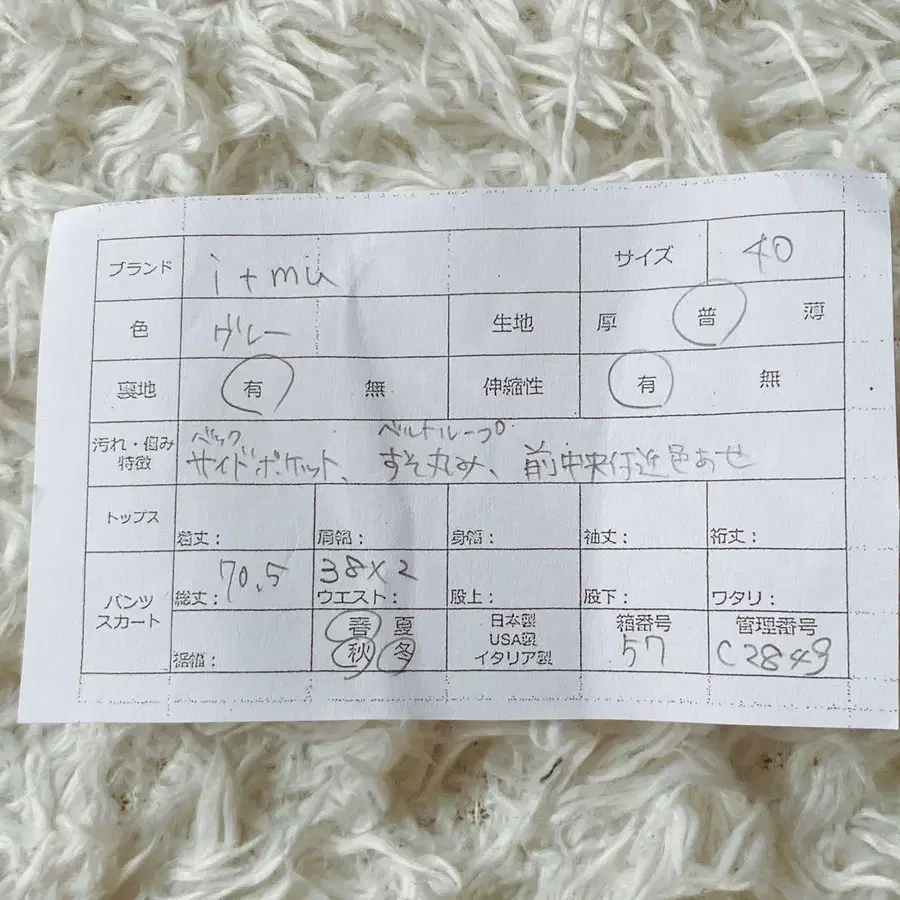 ブランド i+mu サイズ 40
色 グレー 生地 厚 普 薄
裏地 有 無 伸縮性 有 無
汚れ・傷み
特徴
バック ベルトループ
サイドポケット、すそ丸み、前中央付近色あせ
トップス 着丈： 肩幅： 身幅： 袖丈： 裄丈：
パンツ
スカート
70.5 38×2
総丈： ウエスト： 股上： 股下： ワタリ：
裾幅：
春 夏
秋 冬
日本製
USA製
イタリア製
箱番号
57
管理番号
C2849